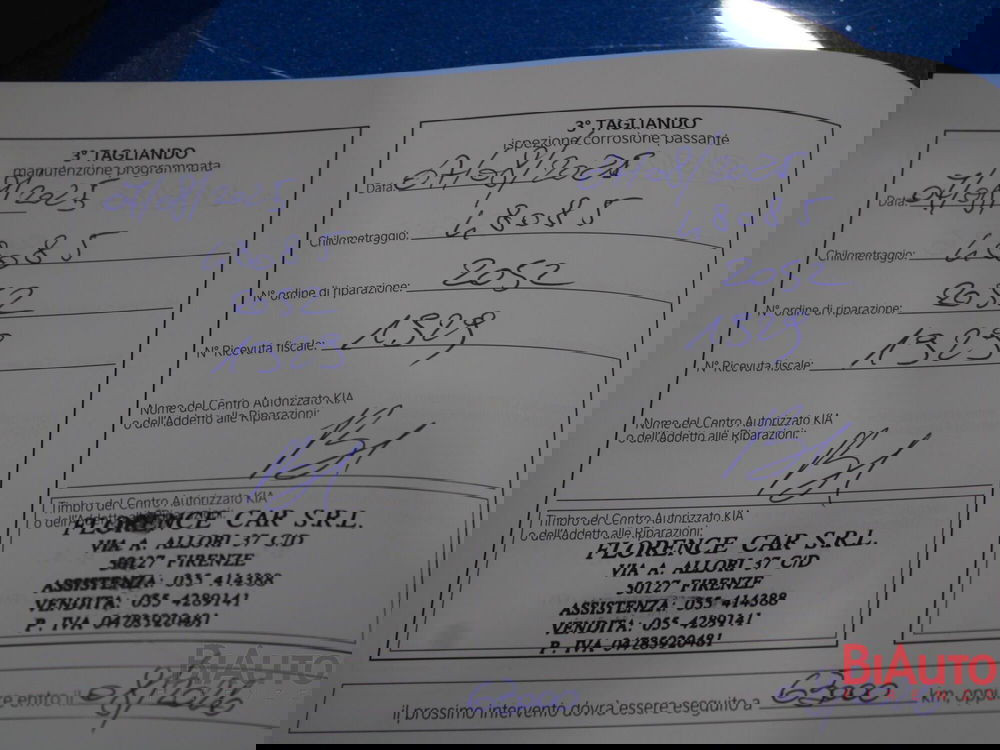 3° TAGLIANDO
manutenzione programmata
48085
3° TAGLIANDO
ispezione corrosione passante
Data:
Chilometraggio: 48085
N° ordine di riparazione: 2052
N° Ricevuta fiscale: 1509
Nome del Centro Autorizzato KIA
o dell'Addetto alle Riparazioni:
Timbro del Centro Autorizzato KIA
o dell'Addetto alle Riparazioni:
FLORENCE CAR S.R.L.
VIA A. ALLORI 37 C/D
50127 FIRENZE
ASSISTENZA: 055 414388
VENDITA: 055 4289141
P. IVA 04283920481
Data:
Chilometraggio: 48085
N° ordine di riparazione: 2052
N° Ricevuta fiscale:
Nome del Centro Autorizzato KIA
o dell'Addetto alle Riparazioni:
Timbro del Centro Autorizzato KIA
o dell'Addetto alle Riparazioni:
FLORENCE CAR S.R.L.
VIA A. ALLORI 37 C/D
50127 FIRENZE
ASSISTENZA: 055 414388
VENDITA: 055 4289141
P. IVA 04283920481
re entro il
il prossimo intervento dovrà essere eseguito a 63000 km, oppu
BiAuto
BiAuto